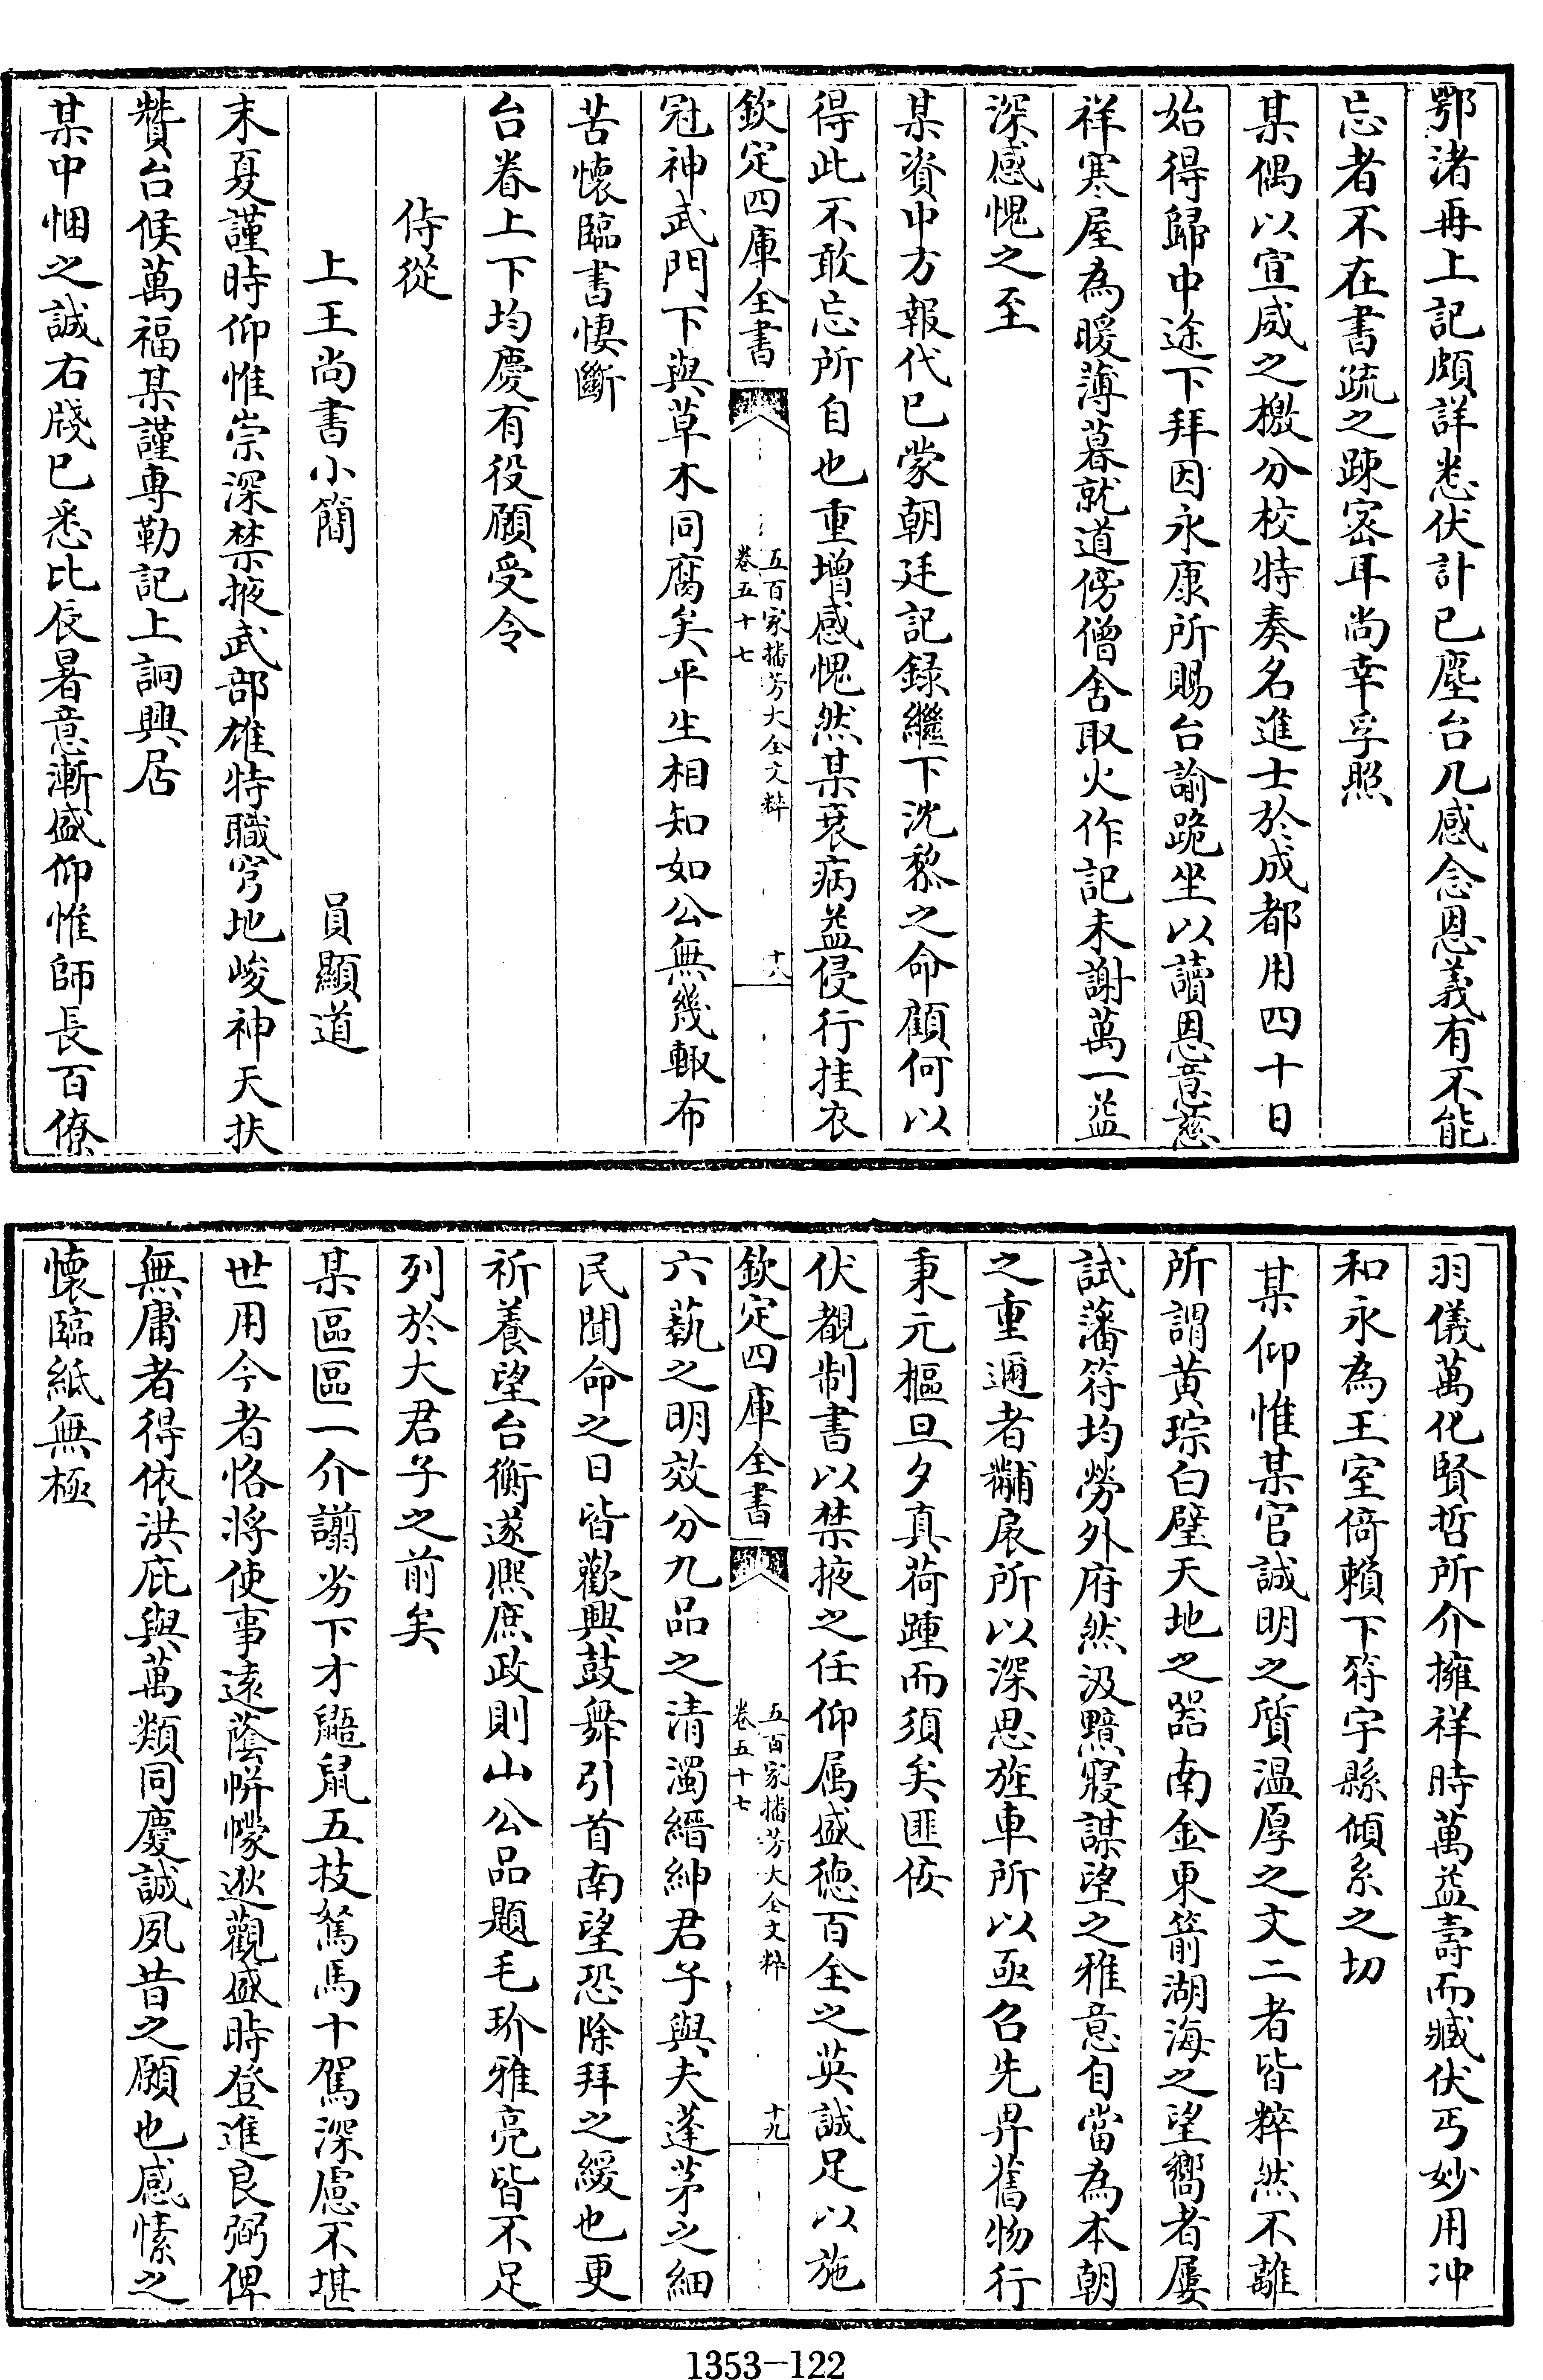 鄂渚再上記頗詳悉伏計已塵台几感念恩義有不能
忘者不在書疏之疎密耳尚幸孚照
某偶以宣威之檄分校特奏名進士於成都用四十日
始得歸中途下拜因永康所賜台諭跪坐以讀恩意慈
祥寒屋為暖薄暮就道傍僧舍取火作記未謝萬一益
深感愧之至
某資中方報代已蒙朝廷記録繼下沈黎之命顧何以
得此不敢忘所自也重增感愧然某衰病益侵行挂衣
欽定四庫全書
五百家播芳大全文粹
卷五十七
十八
冠神武門下與草木同腐矣平生相知如公無幾輙布
苦懷臨書悽斷
台眷上下均慶有役願受令
侍從
上王尚書小簡
員顯道
末夏謹時仰惟崇深禁掖武部雄特職穹地峻神天扶
贊台候萬福某謹專勒記上詗興居
某中悃之誠右牋已悉比辰暑意漸盛仰惟師長百僚
羽儀萬化賢哲所介擁祥時萬益壽而臧伏丐妙用冲
和永為王室倚賴下符宇縣傾系之切
某仰惟某官誠明之質溫厚之文二者皆粹然不離
所謂黄琮白璧天地之器南金東箭湖海之望嚮者屢
試藩符均勞外府然汲黯寢謀望之雅意自當為本朝
之重邇者黼扆所以深思旌車所以亟召先畀舊物行
秉元樞旦夕真荷踵而須矣匪佞
伏覩制書以禁掖之任仰屬盛徳百全之英誠足以施
欽定四庫全書
五百家播芳大全文粹
卷五十七
十九
六蓺之明效分九品之清濁縉紳君子與夫蓬茅之細
民聞命之日皆歡興鼓舞引首南望恐除拜之緩也更
祈養望台衡遂熈庶政則山公品題毛玠雅亮皆不足
列於大君子之前矣
某區區一介譾劣下才鼯鼠五技駑馬十駕深慮不堪
世用今者恪將使事遠蔭帡幪逖觀盛時登進良弼俾
無庸者得依洪庇與萬類同慶誠夙昔之願也感愫之
懷臨紙無極
1353-122